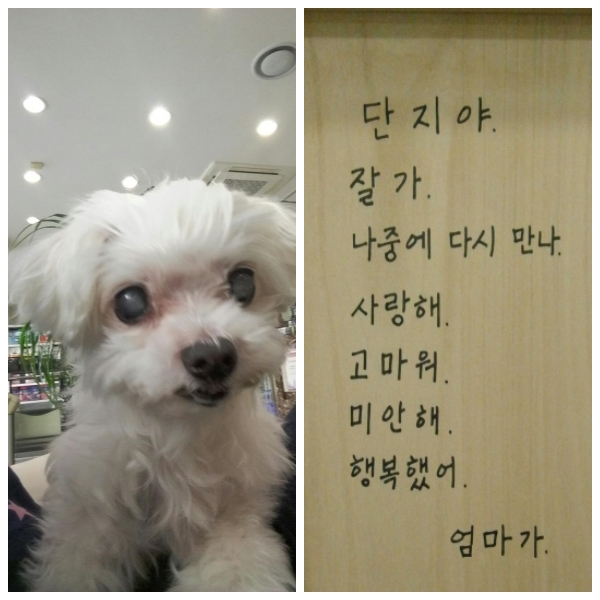 단지야.
잘가.
나중에 다시 만나.
사랑해.
고마워.
미안해.
행복했어.
엄마가.